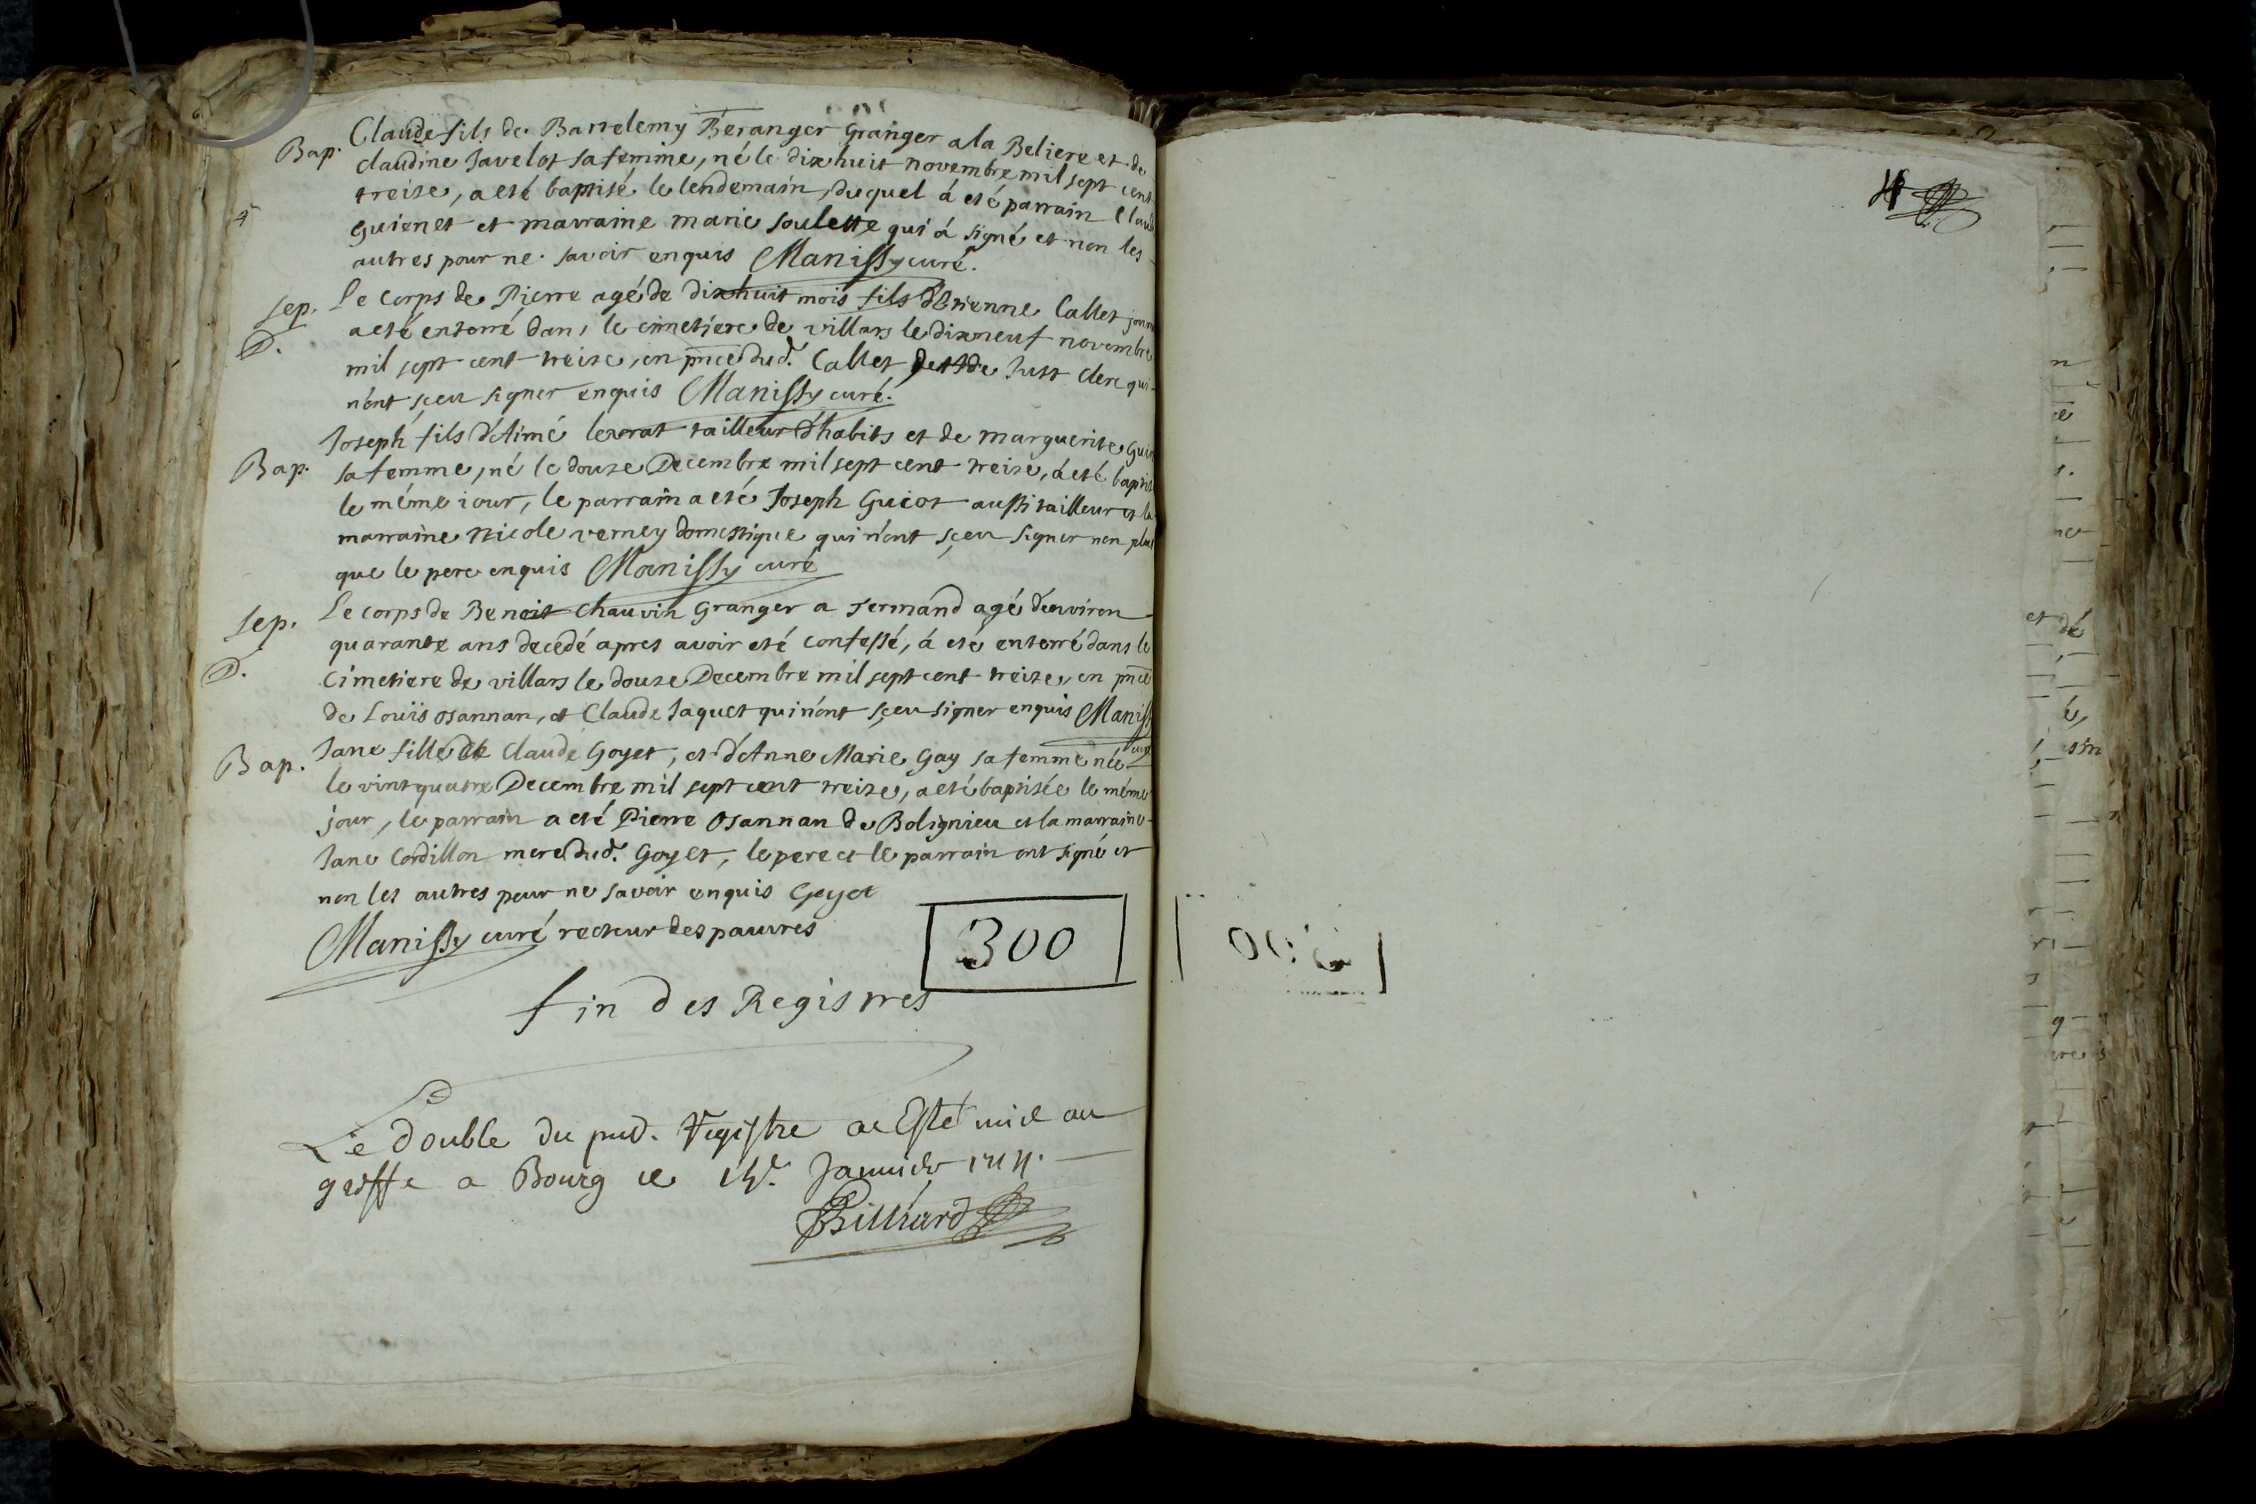 Bap. Claude fils de Bartelemy Beranger Granger a la Beliere et de
claudine Javelot sa femme, né le dixhuit novembre mil sept cent
treize, a eté baptisé le lendemain, duquel á eté parrain Claud
guionet et marraine marie soulette qui á signé et non les
autres pour ne savoir enquis Manissy curé.
sep. Le corps de Pierre agé de dixhuit mois fils d'Etienne Callet
D. a eté enterré dans le cimetiere de villars le dixneuf novembre
mil sept cent treize, en pnce dud. Callet et de Just Clerc qui
n'ont sçeu signer enquis Manissy curé.
Joseph fils d'Aimé lexrat tailleur d'habits et de marguerite
Bap. sa femme, né le douze Decembre mil sept cent treize, á eté baptis
le méme iour, le parrain a eté Joseph Guiot aussi tailleur et la
marraine nicole verney domestique qui n'ont sçeu signer non plus
que le pere enquis Manissy curé
sep. Le corps de Benoit Chauvin Granger a sermand agé d'environ
quarante ans decedé apres avoir eté confessé, á eté enterré dans le
D. Cimetiere de villars le douze Decembre mil sept cent treize, en pnce
de Louïs osannan, et Claude Jaquet qui n'ont sçeu signer enquis Maniss
curé
Bap. Jane fille de Claude Goyet, et d'Anne Marie Gay sa femme née
le vint quatre Decembre mil sept cent treize, a eté baptisée le méme
jour, le parrain a eté Pierre Osannan de Bolignieu et la marraine
Jane Cordillon mere dud. Goyet, le pere et le parrain ont signé et
non les autres pour ne savoir enquis Goyet
Manissy curé recteur des pauvres
300
fin des Registres
Le double du pnd. Registre a Esté mis au
greffe a Bourg le Janvier
Billiard